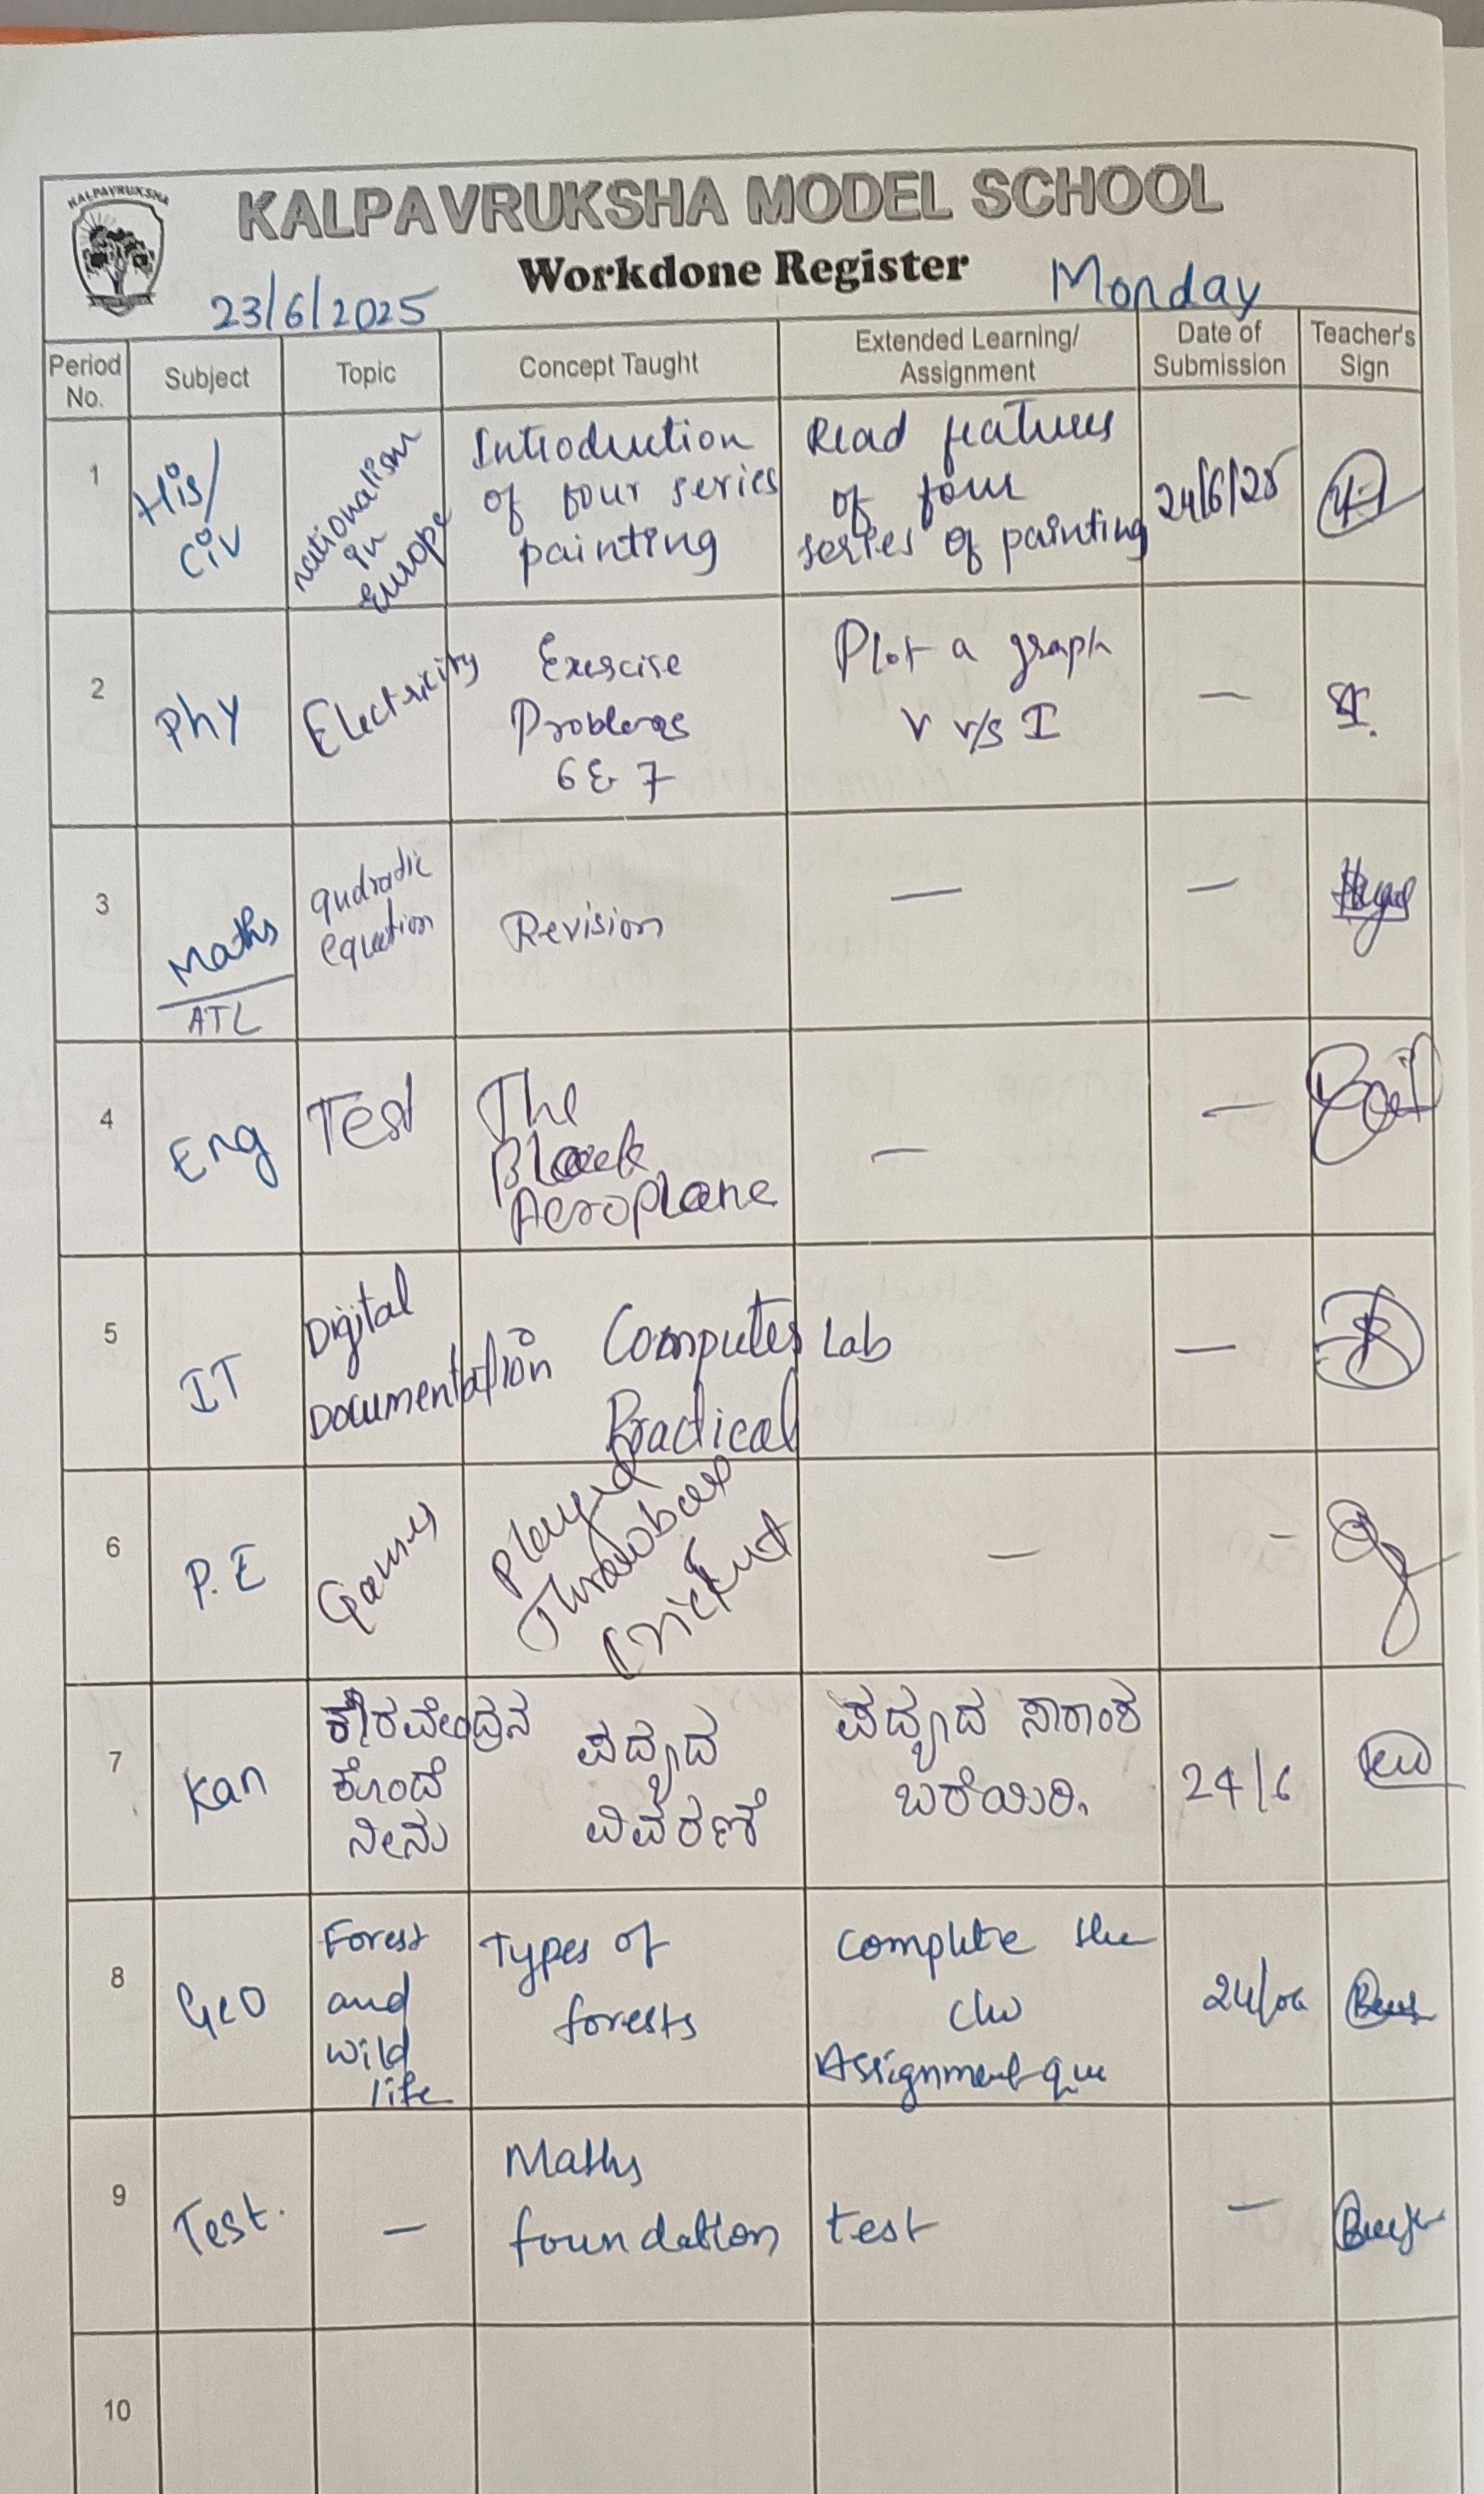 KALPAVRUKSHA
KALPAVRUKSHA MODEL SCHOOL
Workdone Register
23/6/2025
Monday
Period No.
Subject
Topic
Concept Taught
Extended Learning/
Assignment
Date of
Submission
Teacher's
Sign
1
His/
Civ
nationalism
in
Europe
Introduction
of four series
painting
Read features
of four
series of painting
24/6/25
2
Phy
Electricity
Exercise
Problems
6 & 7
Plot a graph
V v/s I
—
3
Maths
ATL
qudradic
equation
Revision
—
—
4
Eng
Test
The
Black
Aeroplane
—
—
5
IT
Digital
Documentation
Computer Lab
Practical
—
6
P.E
Games
Played
Throwball
Cricket
—
-
7
Kan
ಕೌರವೇಂದ್ರನ
ಕೊಂದೆ
ನೀನು
ಪದ್ಯದ
ವಿವರಣೆ
ಪದ್ಯದ ಸಾರಾಂಶ
ಬರೆಯಿರಿ.
24/6
8
Geo
Forest
and
wild
life
Types of
forests
complete the
Assignment que
24/06
9
Test.
—
Maths
foundation test
—
10